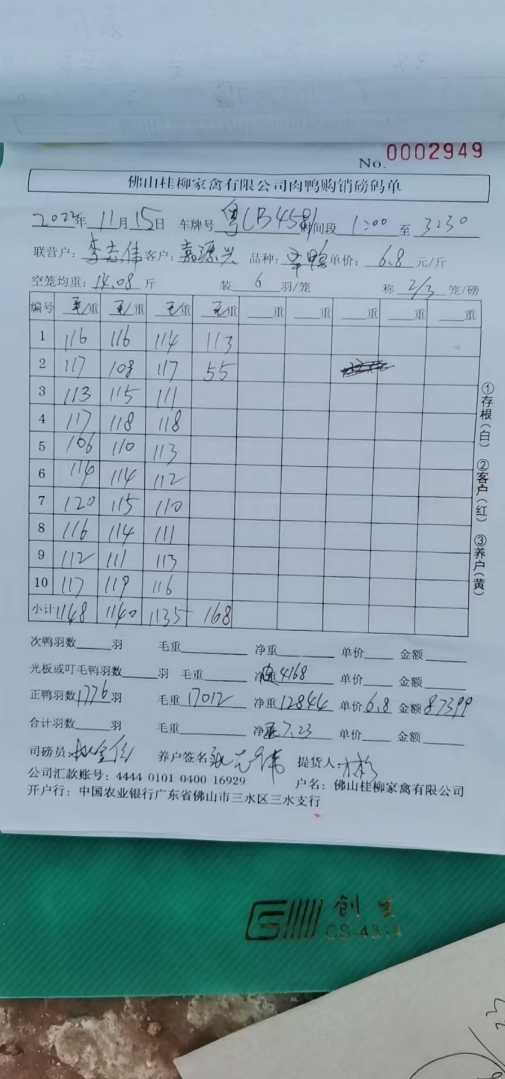 No. 0002949
佛山桂柳家禽有限公司肉鸭购销磅码单
2023年 11月 15日 车牌号 粤LB4581 时间段 1:00 至 3:30
联营户: 李志伟 客户: 嘉源兴 品种: 单价: 6.8 元/斤
空笼均重: 14.08 斤 装 6 羽/笼 称 2/3 笼/磅
编号 毛重 毛重 毛重 毛重 重 重 重 重
1 116 116 114 113
2 117 108 117 55
3 113 115 111
4 117 118 118
5 106 110 113
6 114 114 112
7 120 115 110
8 116 114 111
9 112 111 113
10 117 119 116
小计 1148 1140 1135 168
次鸭羽数 羽 毛重 净重 单价 金额
光板或叮毛鸭羽数 羽 毛重 净重 4168 单价 金额
正鸭羽数 1776 羽 毛重 17012 净重 12844 单价 6.8 金额 87399
合计羽数 羽 毛重 净重 7.23 单价 金额
司磅员: 养户签名: 提货人:
公司汇款账号: 4444 0101 0400 16929 户名: 佛山桂柳家禽有限公司
开户行: 中国农业银行广东省佛山市三水区三水支行
①存根(白) ②客户(红) ③养户(黄)
创生